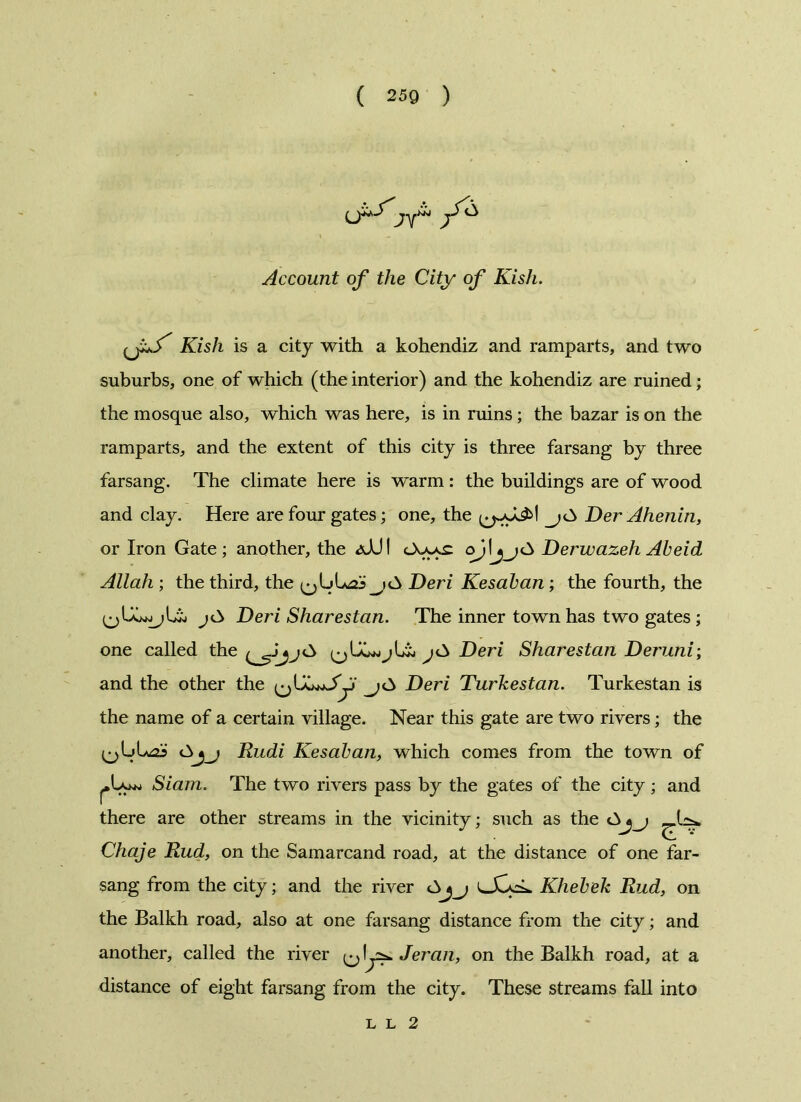 ( 259 )
ذكر شهر كش
Account of the City of Kish.
كش Kish is a city with a kohendiz and ramparts, and two
suburbs, one of which (the interior) and the kohendiz are ruined;
the mosque also, which was here, is in ruins; the bazar is on the
ramparts, and the extent of this city is three farsang by three
farsang. The climate here is warm: the buildings are of wood
and clay. Here are four gates; one, the در اهنين Der Ahenin,
or Iron Gate; another, the دروازه عبيد الله Derwazeh Abeid
Allah; the third, the در قصابان Deri Kesaban; the fourth, the
در شارستان Deri Sharestan. The inner town has two gates;
one called the در شارستان دروني Deri Sharestan Deruni;
and the other the در تركستان Deri Turkestan. Turkestan is
the name of a certain village. Near this gate are two rivers; the
رود قصابان Rudi Kesaban, which comes from the town of
سيام Siam. The two rivers pass by the gates of the city; and
there are other streams in the vicinity; such as the جاج رود
Chaje Rud, on the Samarcand road, at the distance of one far-
sang from the city; and the river خبك رود Khebek Rud, on
the Balkh road, also at one farsang distance from the city; and
another, called the river جران Jeran, on the Balkh road, at a
distance of eight farsang from the city. These streams fall into
L L 2